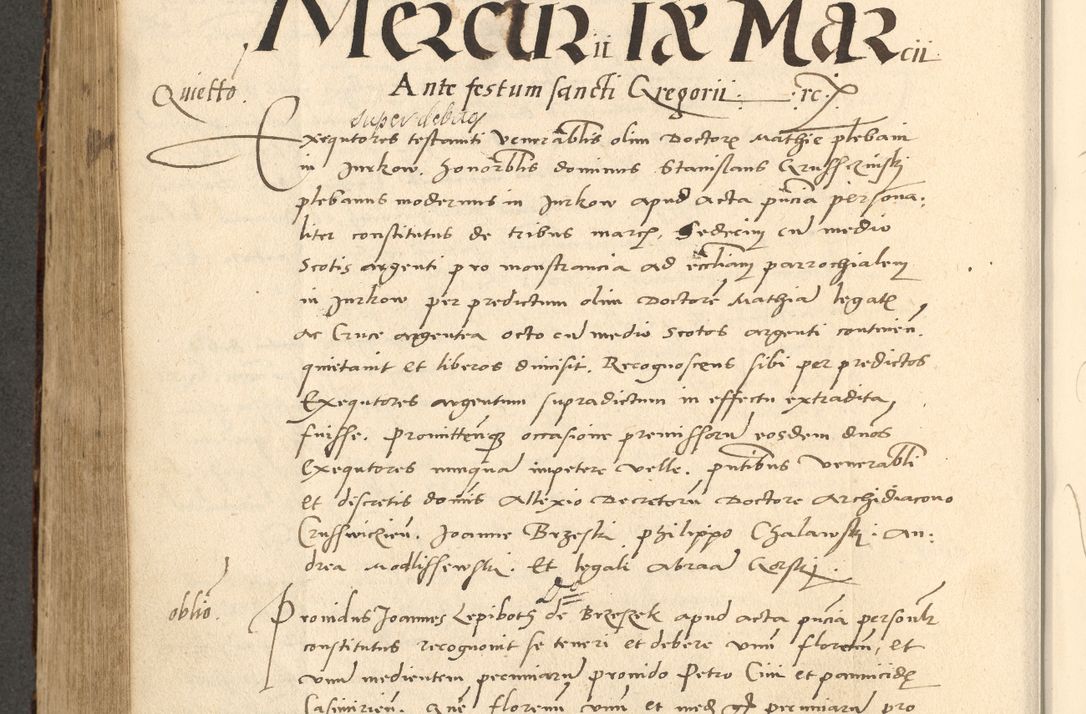 Mercurii IX Marcii
Ante festum sancti Gregorii
Quietto.
Exequtores testamti venerablis olim Doctoris Mathie plebani
in Jurkow. Honorblis dominus Stanislaus
plebanus modernus in Jurkow apud acta pncia persona:
liter constitutus de tribus marcis, Sedecim cu medio
Scotis argenti pro monstrancia ad eccliam parrochialem
in Jurkow per predictum olim Doctore Mathia legatis
ac Cruce argentea octo cu medio Scotos argenti continen.
quietauit et liberos dimisit. Recognoscens sibi per predictos
Exequtores argentum supradictum in effectu extradita
fuisse. Promittenque occasione premissoru eosdem dnos
Exequtores nunqua impetere velle. pntibus venerabli
et discretis domis Allexio Decretoru Doctore Archidiacono
Crusswicien. Joanne Brzeski Philippo Chalawski. An:
drea Modlissewski. Et legali Abraa Gorski.
oblio. Prouidus Joannes Lepiboth de Brzezek apud acta pncia personlr
constitutus recognouit se teneri et debere vnu florenu, et
vnu medientem pecuniaru prouido Petro Ciui et pannicide
Casimirien. Que florenu vnu et med gr pecuniaru pro